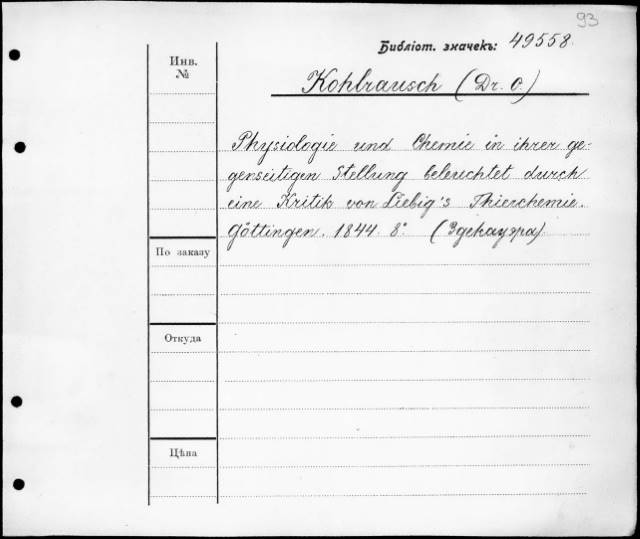 93
Библіот. значекъ: 49558.
Инв.
№
Kohlrausch (Dr. O.)
Physiologie und Chemie in ihrer ge-
genseitigen Stellung beleuchtet durch
eine Kritik von Liebig's Thierchemie.
Göttingen. 1844. 8° (Здекауэра)
По заказу
Откуда
Цѣна